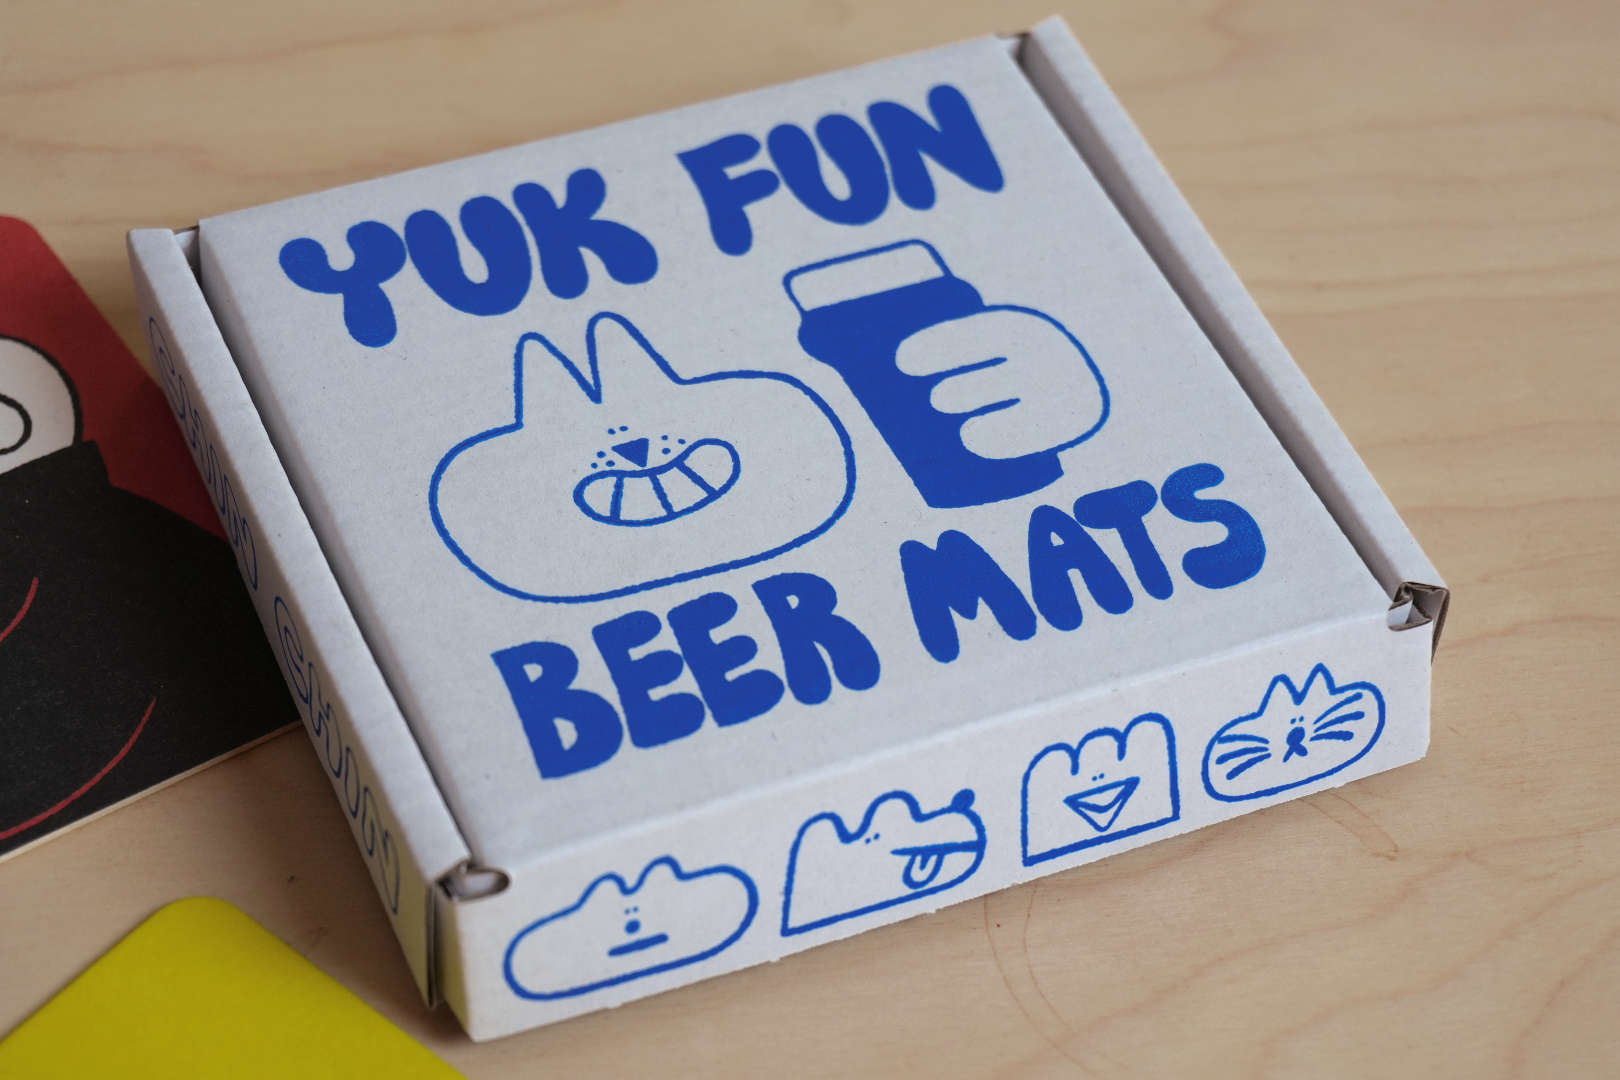 YUK FUN
BEER MATS